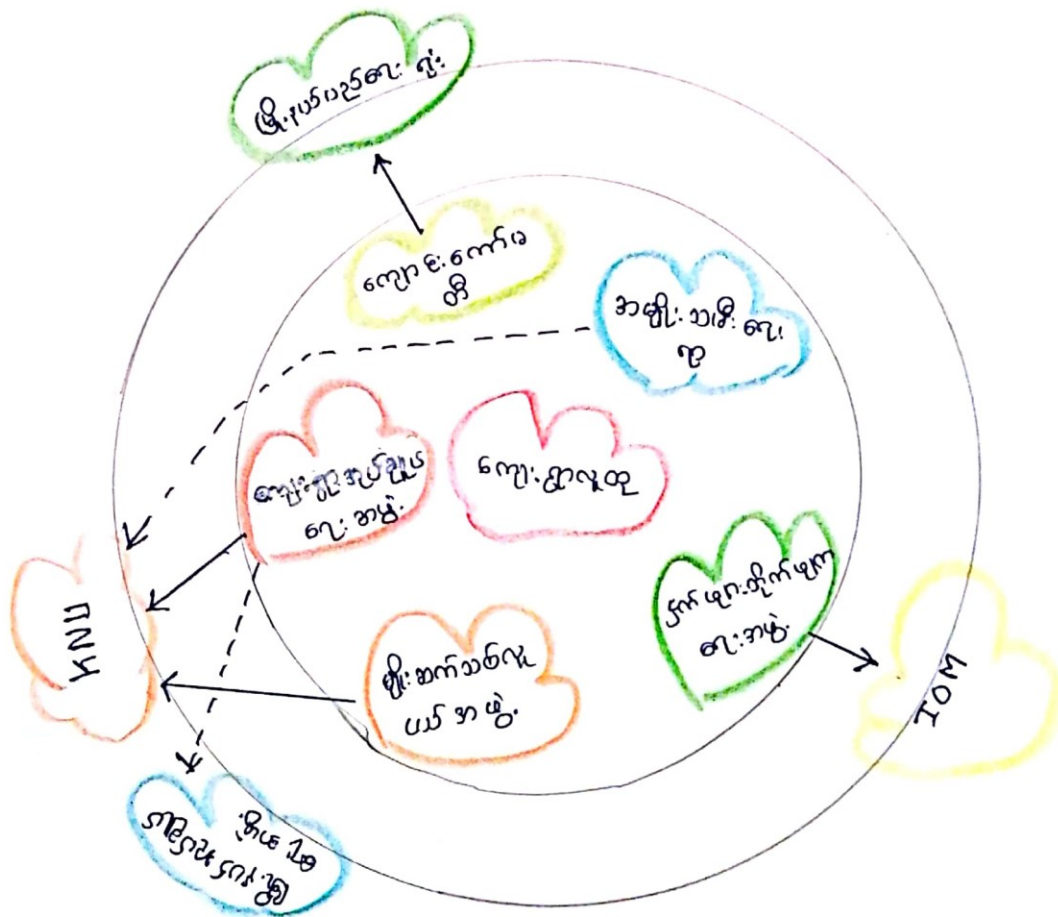 မြို့နယ်ပညာရေး ရုံး
ကျောင်းကော်မ
တီ
အမျိုးသမီးရေး
ရာ
ကျေးရွာအုပ်ချုပ်
ရေးအဖွဲ့
ကျေးရွာလူထု
ငှက်ဖျားတိုက်ဖျက်
ရေးအဖွဲ့
KNU
မျိုးဆက်သစ်လူ
ငယ်အဖွဲ့
IOM
မြို့နယ်အုပ်ချုပ်
ရေးအဖွဲ့